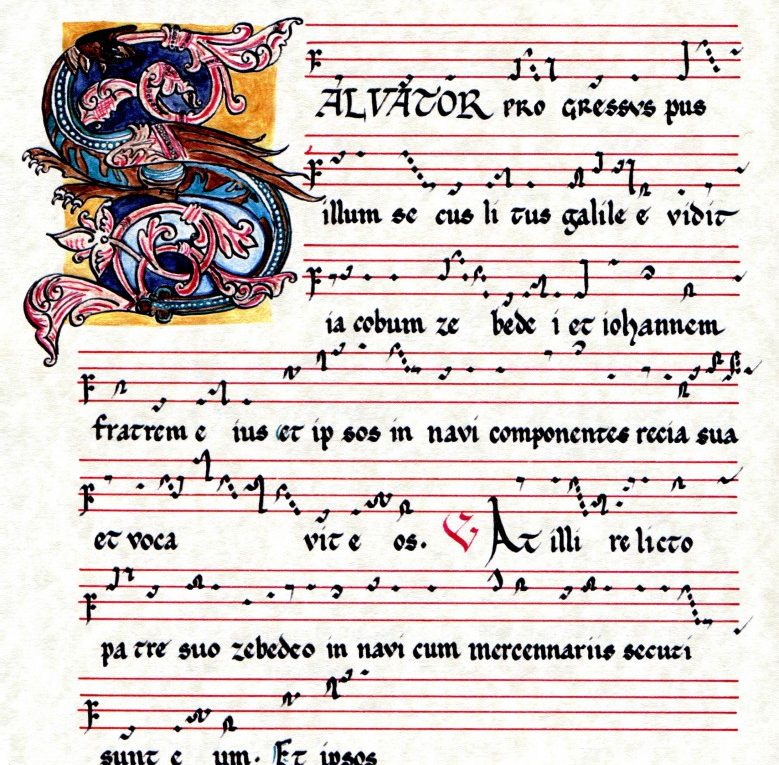 SALVATOR PRO GRESSVS PUS
illum se cus li tus galile e vidit
ia cobum ze bede i et iohannem
fratrem e ius et ip sos in navi componentes recia sua
et voca vit e os. E At illi re licto
pa tre suo zebedeo in navi cum mercennariis secuti
sunt e um. Et ipsos